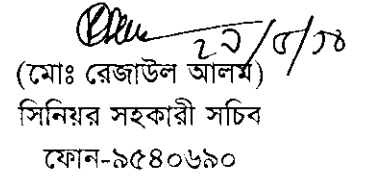 ২৯/৫/১৪
(মোঃ রেজাউল আলম)
সিনিয়র সহকারী সচিব
ফোন-৯৫৪০৬৯০